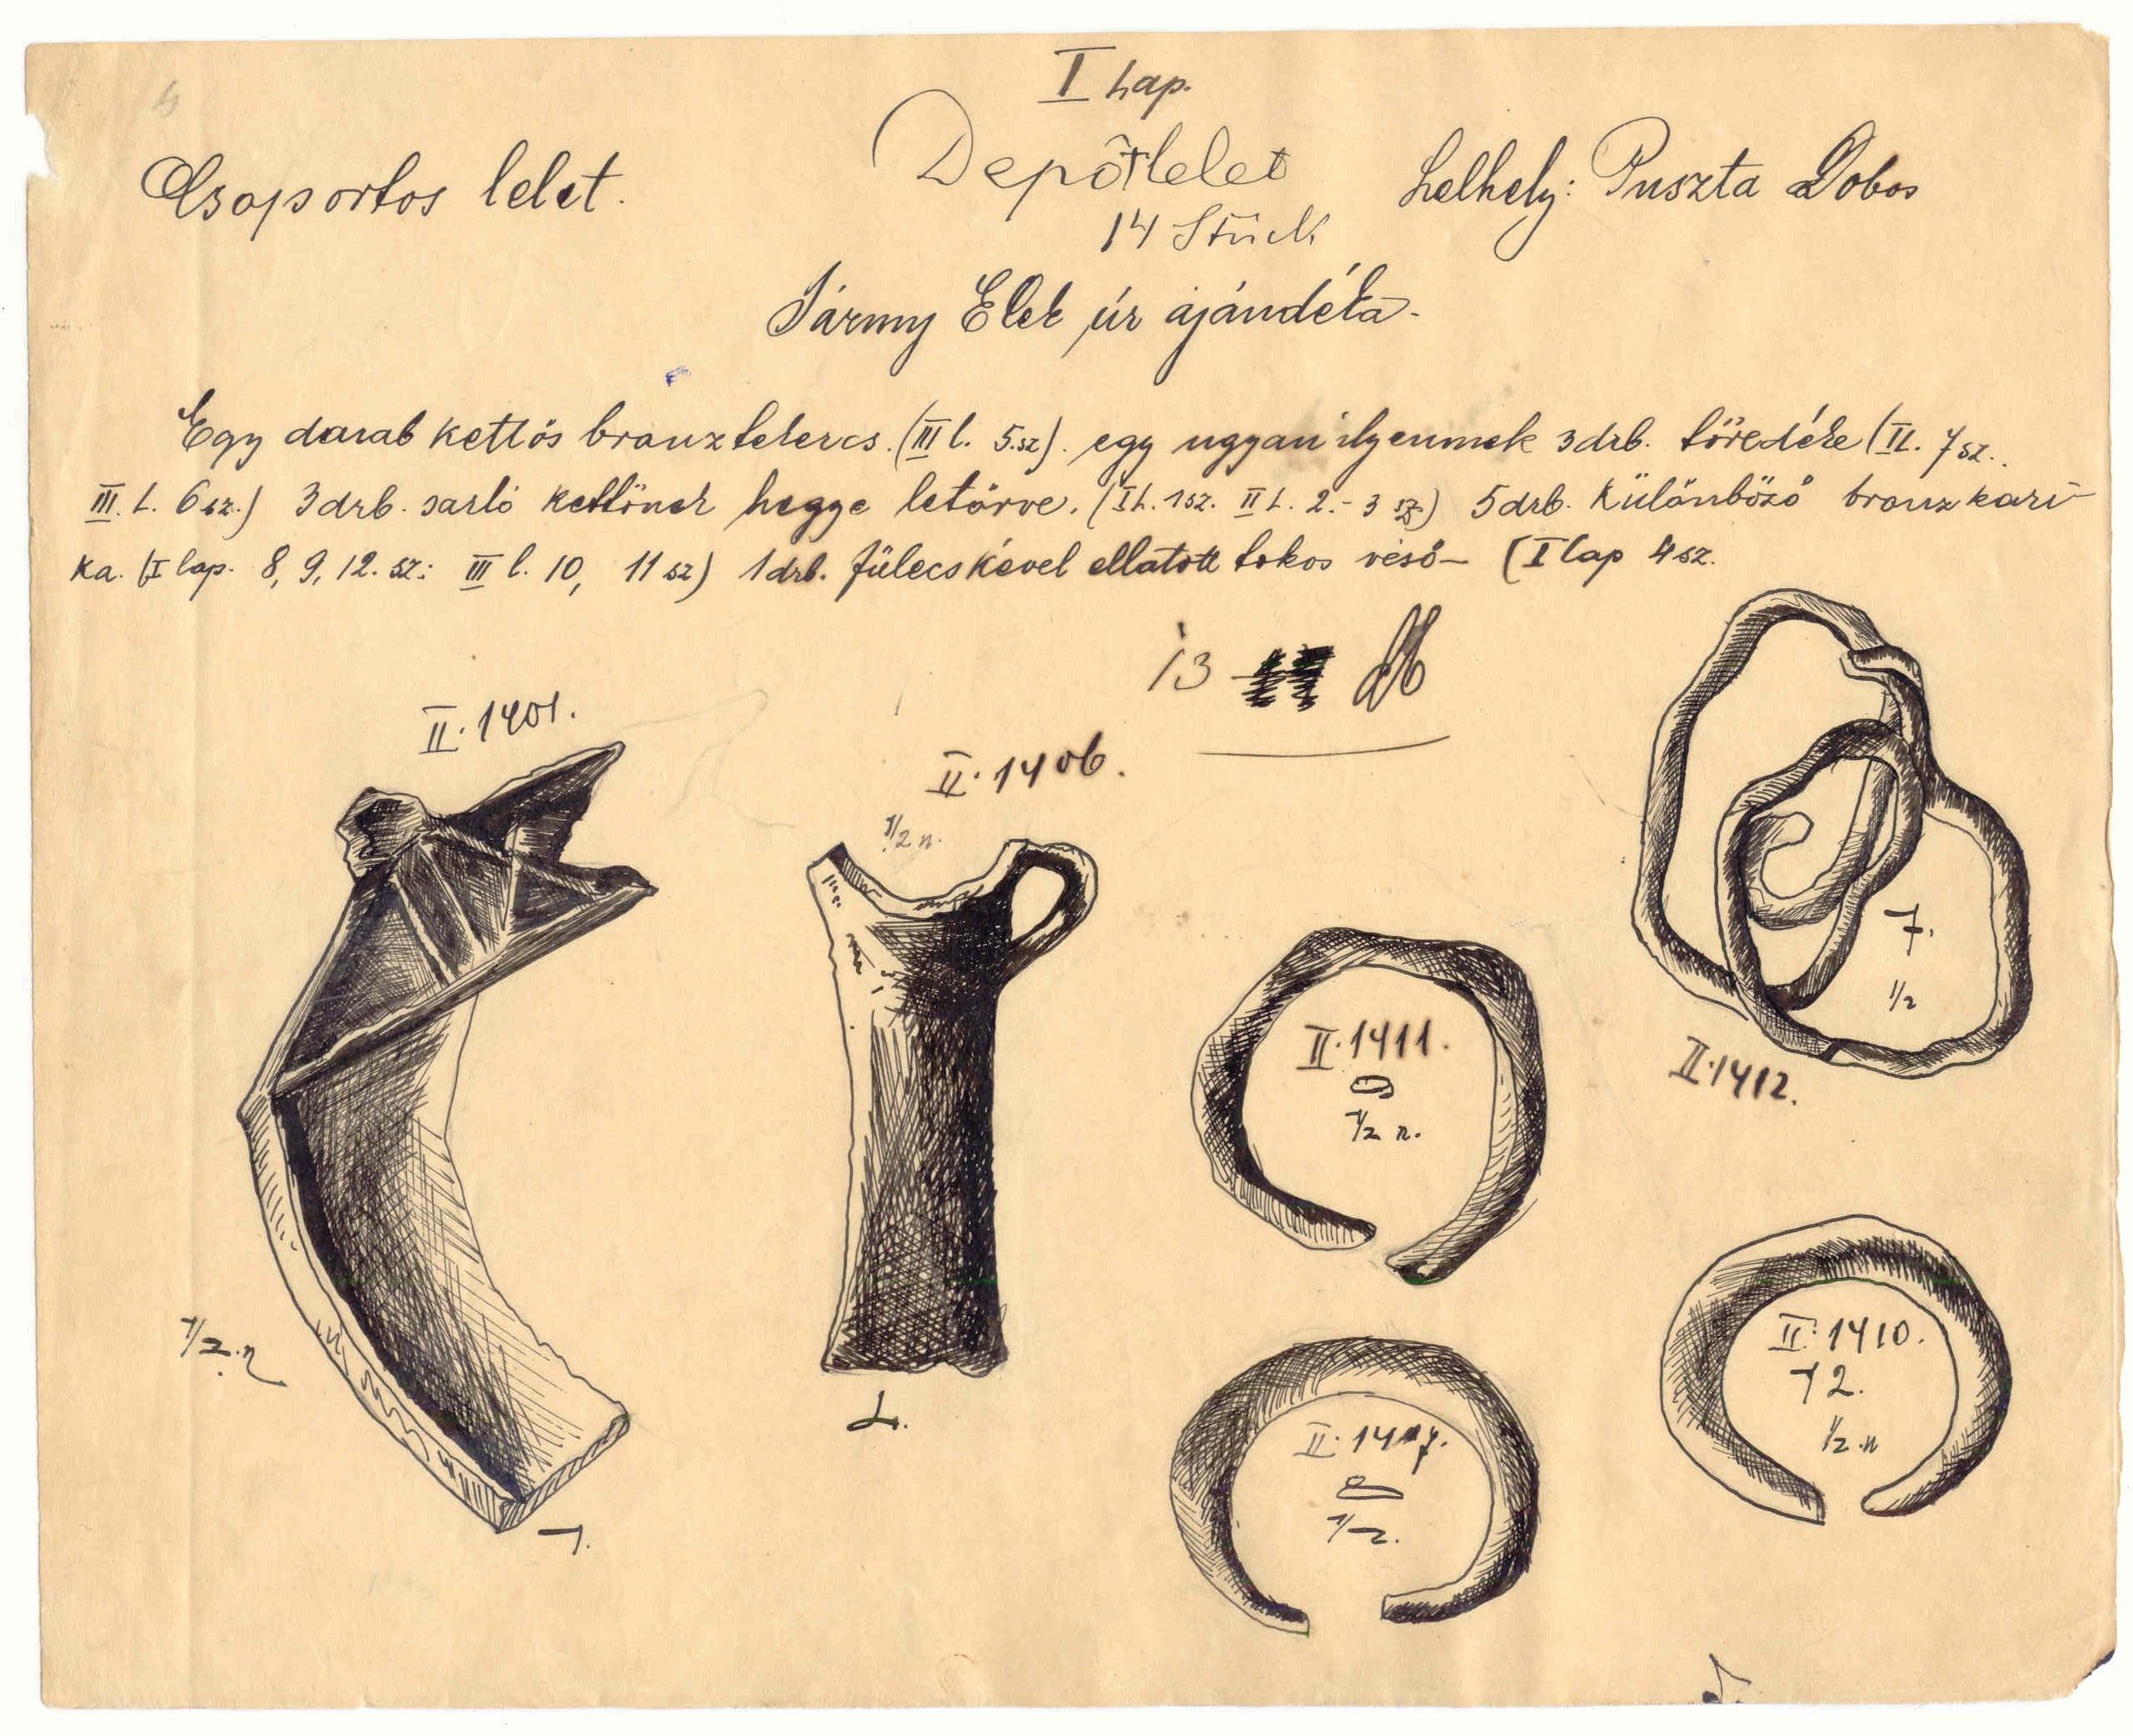 I Lap.
Csoportos lelet.
Depôtlelet
14 Stück
Lelhely: Puszta Dobos
Jármy Elek úr ajándéka.
Egy darab kettős bronztekercs. (III l. 5.sz). egy ugyan ilyennek 3drb. töredéke (II. 7sz..
III. L. 6sz.) 3drb. sarló kettőnek hegye letörve. (I L. 1sz. II L. 2.-3 sz) 5drb. különböző bronz kari-
ka. (I lap. 8, 9, 12. sz: III l. 10, 11 sz) 1drb. fülecskével ellátott tokos véső- (I lap 4sz.
13
II. 1401.
II. 1406.
1/2 n.
7.
1/2
II. 1412.
II. 1411.
1/2 n.
II. 1410.
12.
1/2 n
1/2.n
4.
II. 1407.
1/2.
1.